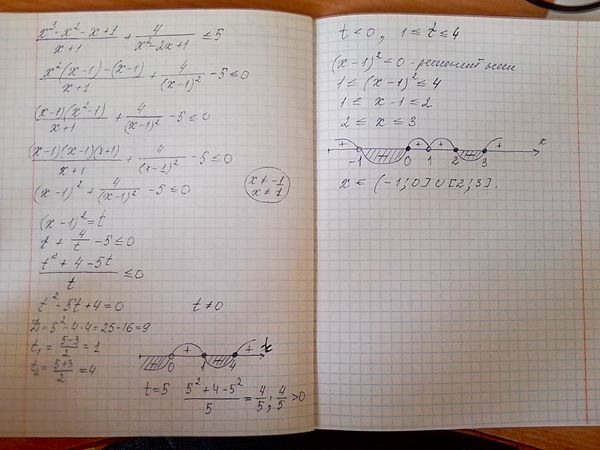 x³-x²-x+1 / x+1 + 4 / x²-2x+1 ≤ 5
x²(x-1)-(x-1) / x+1 + 4 / (x-1)² -5≤0
(x-1)(x²-1) / x+1 + 4 / (x-1)² -5≤0
(x-1)(x-1)(x+1) / x+1 + 4 / (x-1)² -5≤0
(x-1)² + 4 / (x-1)² -5≤0
x≠-1
x≠1
(x-1)²=t
t + 4/t -5≤0
t²+4-5t / t ≤0
t²-5t+4=0 t≠0
D=5²-4·4=25-16=9
t₁ = 5-3 / 2 = 1
t₂ = 5+3 / 2 = 4
- + - + t
0 1 4
t=5 5²+4-5² / 5 = 4/5; 4/5 >0
t<0, 1≤t≤4
(x-1)²<0 - решений нет
1≤(x-1)²≤4
1≤ x-1≤2
2≤x≤3
+ + + + x
-1 0 1 2 3
x∈(-1;0]∪[2;3].